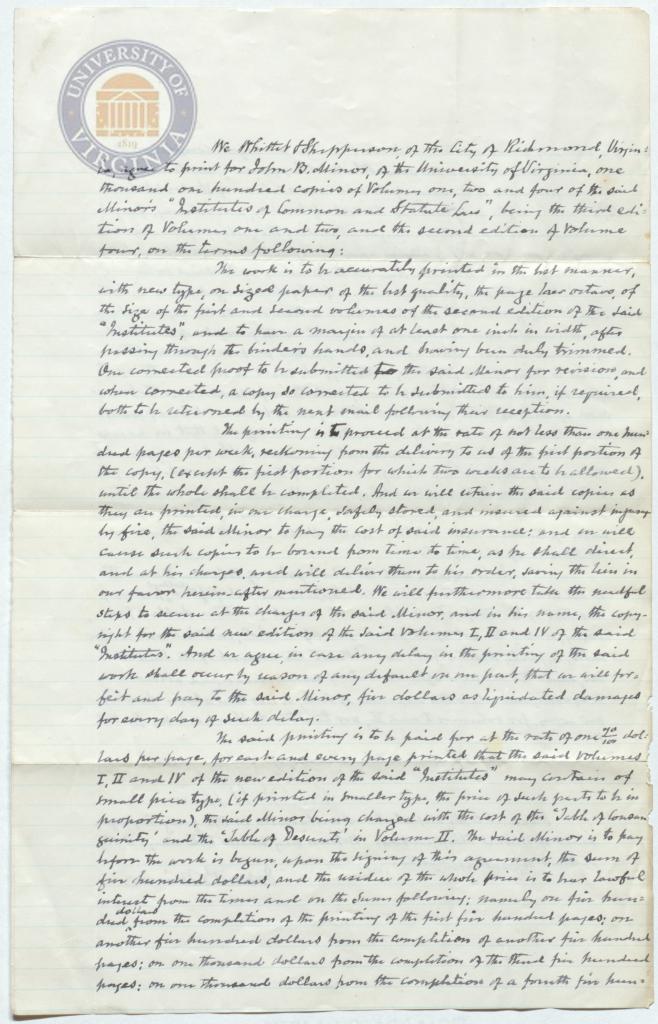 UNIVERSITY OF
VIRGINIA
1819
We Whittet & Shepperson, of the City of Richmond, Virgin-
ia, agree to print for John B. Minor, of the University of Virginia, one
thousand one hundred copies of Volumes one, two and four of the said
Minor's "Institutes of Common and Statute Law", being the third edi-
tion of Volumes one and two, and the second edition of Volume
four, on the terms following:
The work is to be accurately printed in the best manner,
with new type, on sized paper of the best quality, the page large octavo, of
the size of the first and second volumes of the second edition of the said
"Institutes", and to have a margin of at least one inch in width, after
passing through the binder's hands, and having been duly trimmed.
One corrected proof to be submitted to the said Minor for revision, and
when corrected, a copy so corrected to be submitted to him, if required,
both to be returned by the next mail following their reception.
The printing is to proceed at the rate of not less than one hun-
dred pages per week, reckoning from the delivery to us of the first portion of
the copy, (except the first portion for which two weeks are to be allowed),
until the whole shall be completed. And we will retain the said copies as
they are printed, in our charge, safely stored, and insured against injury
by fire, the said Minor to pay the cost of said insurance; and we will
cause such copies to be bound from time to time, as he shall direct,
and at his charges, and will deliver them to his order, saving the lien in
our favor herein-after mentioned. We will furthermore take the needful
steps to secure at the charges of the said Minor, and in his name, the copy-
right for the said new edition of the said Volumes I, II and IV of the said
"Institutes". And we agree, in case any delay in the printing of the said
work shall occur by reason of any default on our part, that we will for-
feit and pay to the said Minor, five dollars as liquidated damages
for every day of such delay.
The said printing is to be paid for at the rate of one 70/100 dol-
lars per page, for each and every page printed that the said Volumes
I, II and IV of the new edition of the said "Institutes" may contain of
small pica type, (if printed in smaller type, the price of such parts to be in
proportion), the said Minor being charged with the cost of the 'Table of Consan-
guinity' and the 'Table of Descents' in Volume II. The said Minor is to pay
before the work is begun, upon the signing of this agreement, the sum of
five hundred dollars, and the residue of the whole price is to bear lawful
interest from the times and on the sums following; namely on five hun-
dred dollars from the completion of the printing of the first five hundred pages; on
another five hundred dollars from the completion of another five hundred
pages; on one thousand dollars from the completion of the third five hundred
pages; on one thousand dollars from the completion of a fourth five hun-